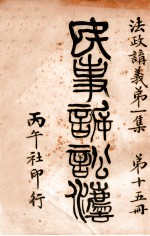 法政講義第一集　第十五冊
民事訴訟法
丙午社印行